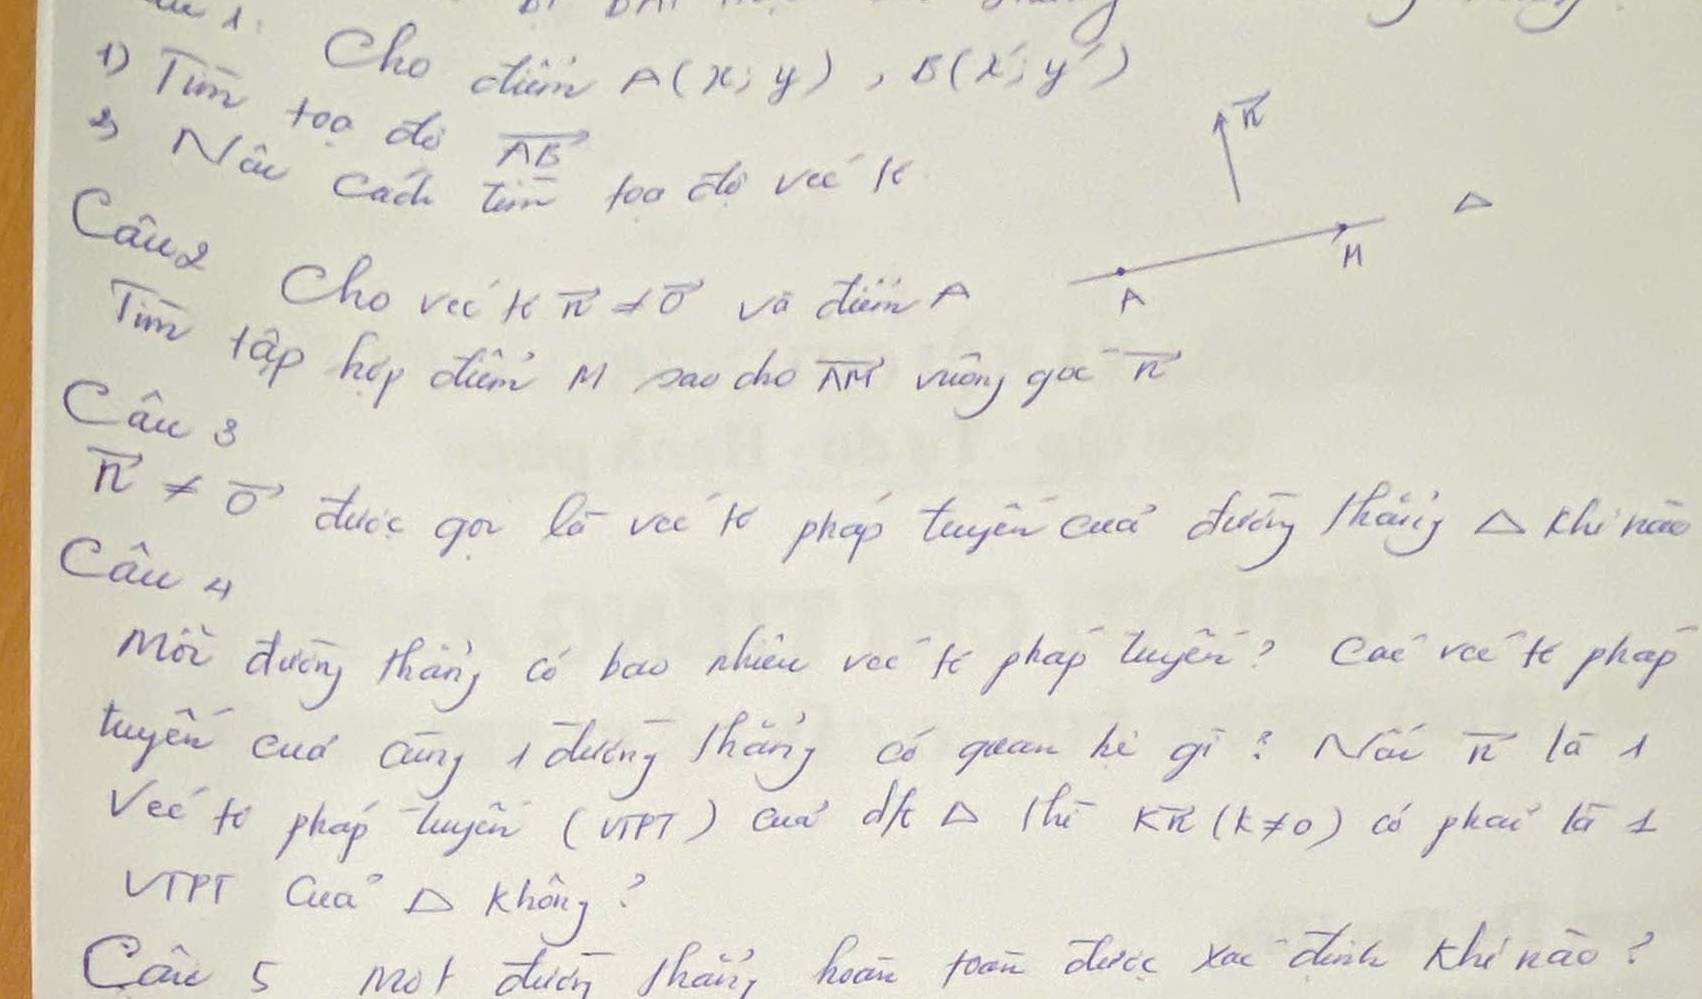 1. Cho điểm A(x; y), B(x'; y')
1) Tìm toạ độ AB
2) Nêu cách tìm toạ độ véc tơ
n
Δ
A M
Câu 2 Cho véc tơ n ≠ 0 và điểm A
Tìm tập hợp điểm M sao cho AM vuông góc n
Câu 3
n ≠ 0 được gọi là véc tơ pháp tuyến của đường thẳng Δ khi nào
Câu 4
Mỗi đường thẳng có bao nhiêu véc tơ pháp tuyến? Các véc tơ pháp
tuyến của cùng 1 đường thẳng có quan hệ gì? Nếu n là 1
Véc tơ pháp tuyến (VTPT) của đt Δ thì kn (k≠0) có phải là 1
VTPT của Δ không?
Câu 5 Một đường thẳng hoàn toàn được xác định khi nào?